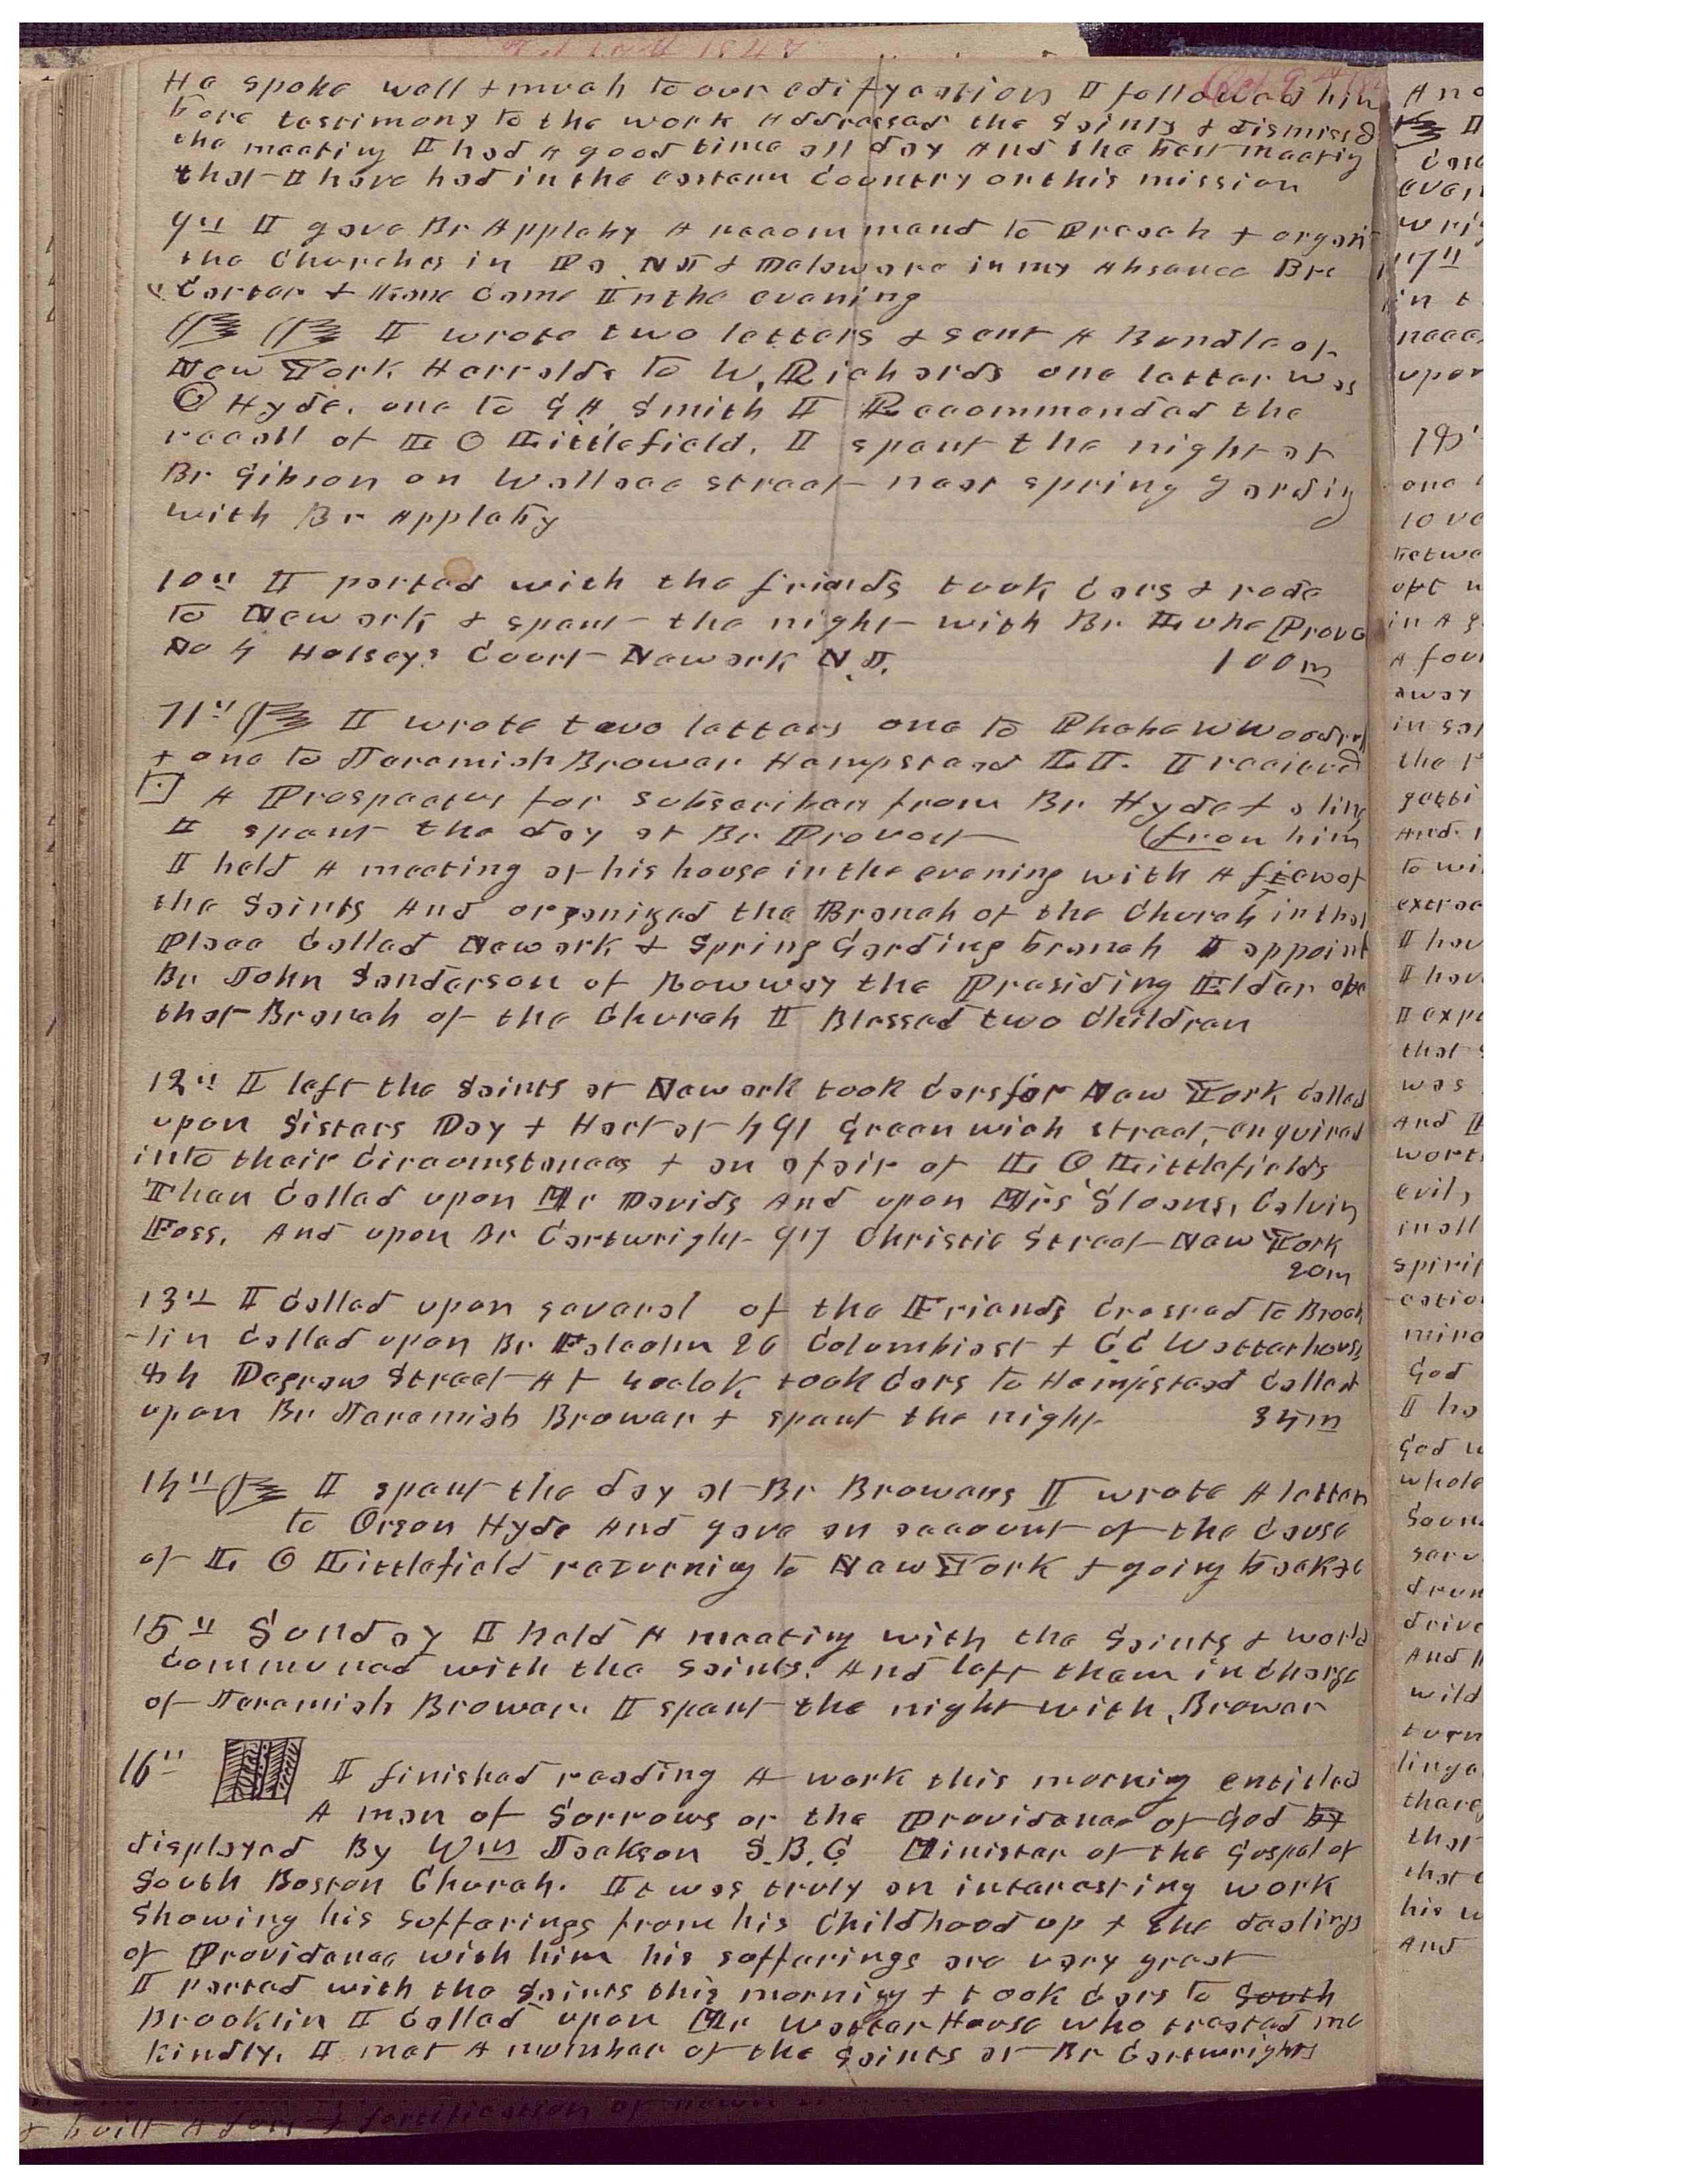 Oct 9th 18
He spoke well & much to our edifycation I followed him
bore testimony to the work Addressed the Saints & dismissed
the meeting I had A good time all day And the best meeting
that I have had in the eastern Country on this mission
9th I gave Br Appleby A recommend to Preach & organi
the Churches in Pa NJ & Delaware in my Absence Bre
Carter & Kane Came In the evening
I wrote two letters & sent A Bundle of
New York Harrolds to W. Richards one letter was
O Hyde. one to G A Smith I Reccommended the
recall of L O Littlefield. I spent the night at
Br Gibson on Wallace street near spring garding
with Br Appleby
10th I parted with the friends took Cars & rode
to Newark & spent the night with Br Luke Provo
No 4 Halseys Court Newark N.J. 100 m
11th I wrote two letters one to Phebe W Woodruf
& one to Jeremiah Brower Hempstead L I. I recieved
A Prospectus for Subscribers from Br Hyde & a line
I spent the day at Br Provost (from him
I held A meeting at his house in the evening with A few of
the Saints And organized the Branch of the Church in that
Place Called Newark & Spring Garding branch I appoint
Br John Sanderson of Rowway the Presiding Elder ove
that Branch of the Church I Blessed two Children
12th I left the Saints at Newark took Cars for New York Called
upon Sisters Day & Hart at 491 Greenwich street, enquired
into their Circumstances & an afair of L O Littlefields
Than Called upon Mr Davids And upon Mrs Sloans, Calvin
Foss. And upon Br Cartwright 97 Christie Street New York
20 m
13th I Called upon several of the Friends Crossed to Brook
-lin Called upon Br 26 Columbia st & CC Watterhouse
Degraw Street At 4 oclok took Cars to Hempstead Called
upon Br Jeremiah Brower & spent the night 34 m
14th I spent the day at Br Browers I wrote A letter
to Orson Hyde And gave an account of the Cause
of L O Littlefield returning to New York & going back &c
15th Sunday I held A meeting with the Saints & world
Communed with the Saints. And left them in Charge
of Jeremiah Brower. I spent the night with, Brower
16th I finished reading A work this morning entitled
A man of Sorrows or the Providence of God by
displayed By Wm Jackson S.B.C Minister of the Gospel of
South Boston Church. It was truly an interesting work
Showing his sufferings from his Childhood up & the dealings
of Providence with him his sufferings are very great
I parted with the Saints this morning & took Cars to South
Brooklin I Called upon Mr Watter House who treated me
kindly. I met A number of the Saints at Br Cartwrights